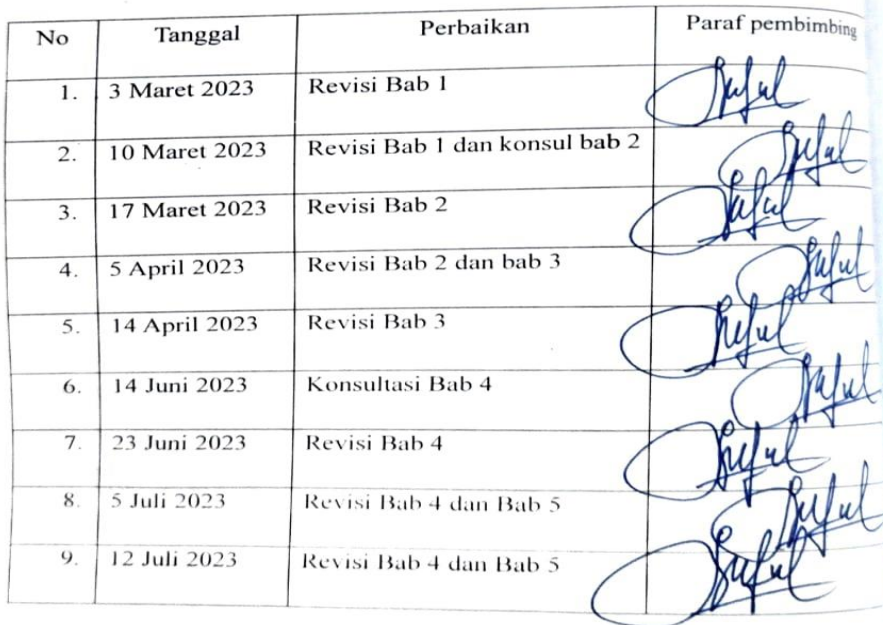 No Tanggal Perbaikan Paraf pembimbing
1. 3 Maret 2023 Revisi Bab 1
2. 10 Maret 2023 Revisi Bab 1 dan konsul bab 2
3. 17 Maret 2023 Revisi Bab 2
4. 5 April 2023 Revisi Bab 2 dan bab 3
5. 14 April 2023 Revisi Bab 3
6. 14 Juni 2023 Konsultasi Bab 4
7. 23 Juni 2023 Revisi Bab 4
8. 5 Juli 2023 Revisi Bab 4 dan Bab 5
9. 12 Juli 2023 Revisi Bab 4 dan Bab 5